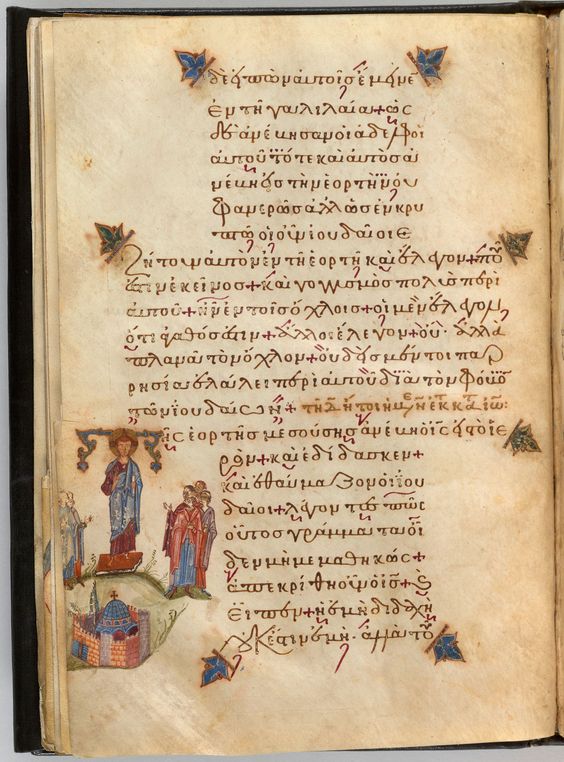 δὲ εἰπὼν αὐτοῖς ἔμεινεν
ἐν τῇ γαλιλαία + ὡς
δὲ ἀνέβησαν οἱ ἀδελφοὶ
αὐτοῦ τότε καὶ αὐτὸς ἀ
νέβη εἰς τὴν ἑορτὴν οὐ
φανερῶς ἀλλ' ὡς ἐν κρυ
πτῶ οἱ οὖν ἰουδαῖοι ἐ
ζήτουν αὐτὸν ἐν τῇ ἑορτῇ καὶ ἔλεγον + ποῦ
ἐστὶν ἐκεῖνος + καὶ γογγυσμὸς πολὺς περὶ
αὐτοῦ + ἦν ἐν τοῖς ὄχλοις + οἱ μὲν ἔλεγον
ὅτι ἀγαθός ἐστιν + ἄλλοι ἔλεγον + οὔ· ἀλλὰ
πλανᾶ τὸν ὄχλον + οὐδεὶς μέντοι παρ
ρησία ἐλάλει περὶ αὐτοῦ διὰ τὸν φόβον
τῶν ἰουδαίων +
τῆς ἑορτῆς μεσούσης ἀνέβη ὁ ις εἰς τὸ ἱε
ρὸν + καὶ ἐδίδασκεν +
καὶ ἐθαύμαζον οἱ ἰου
δαῖοι + λέγοντες πῶς
οὗτος γράμματα οἶ
δεν μὴ μεμαθηκὼς +
ἀπεκρίθη αὐτοῖς ὁ ις +
εἶπεν + ἡ ἐμὴ διδαχὴ
οὐκ ἔστιν ἐμὴ· ἀλλὰ τοῦ